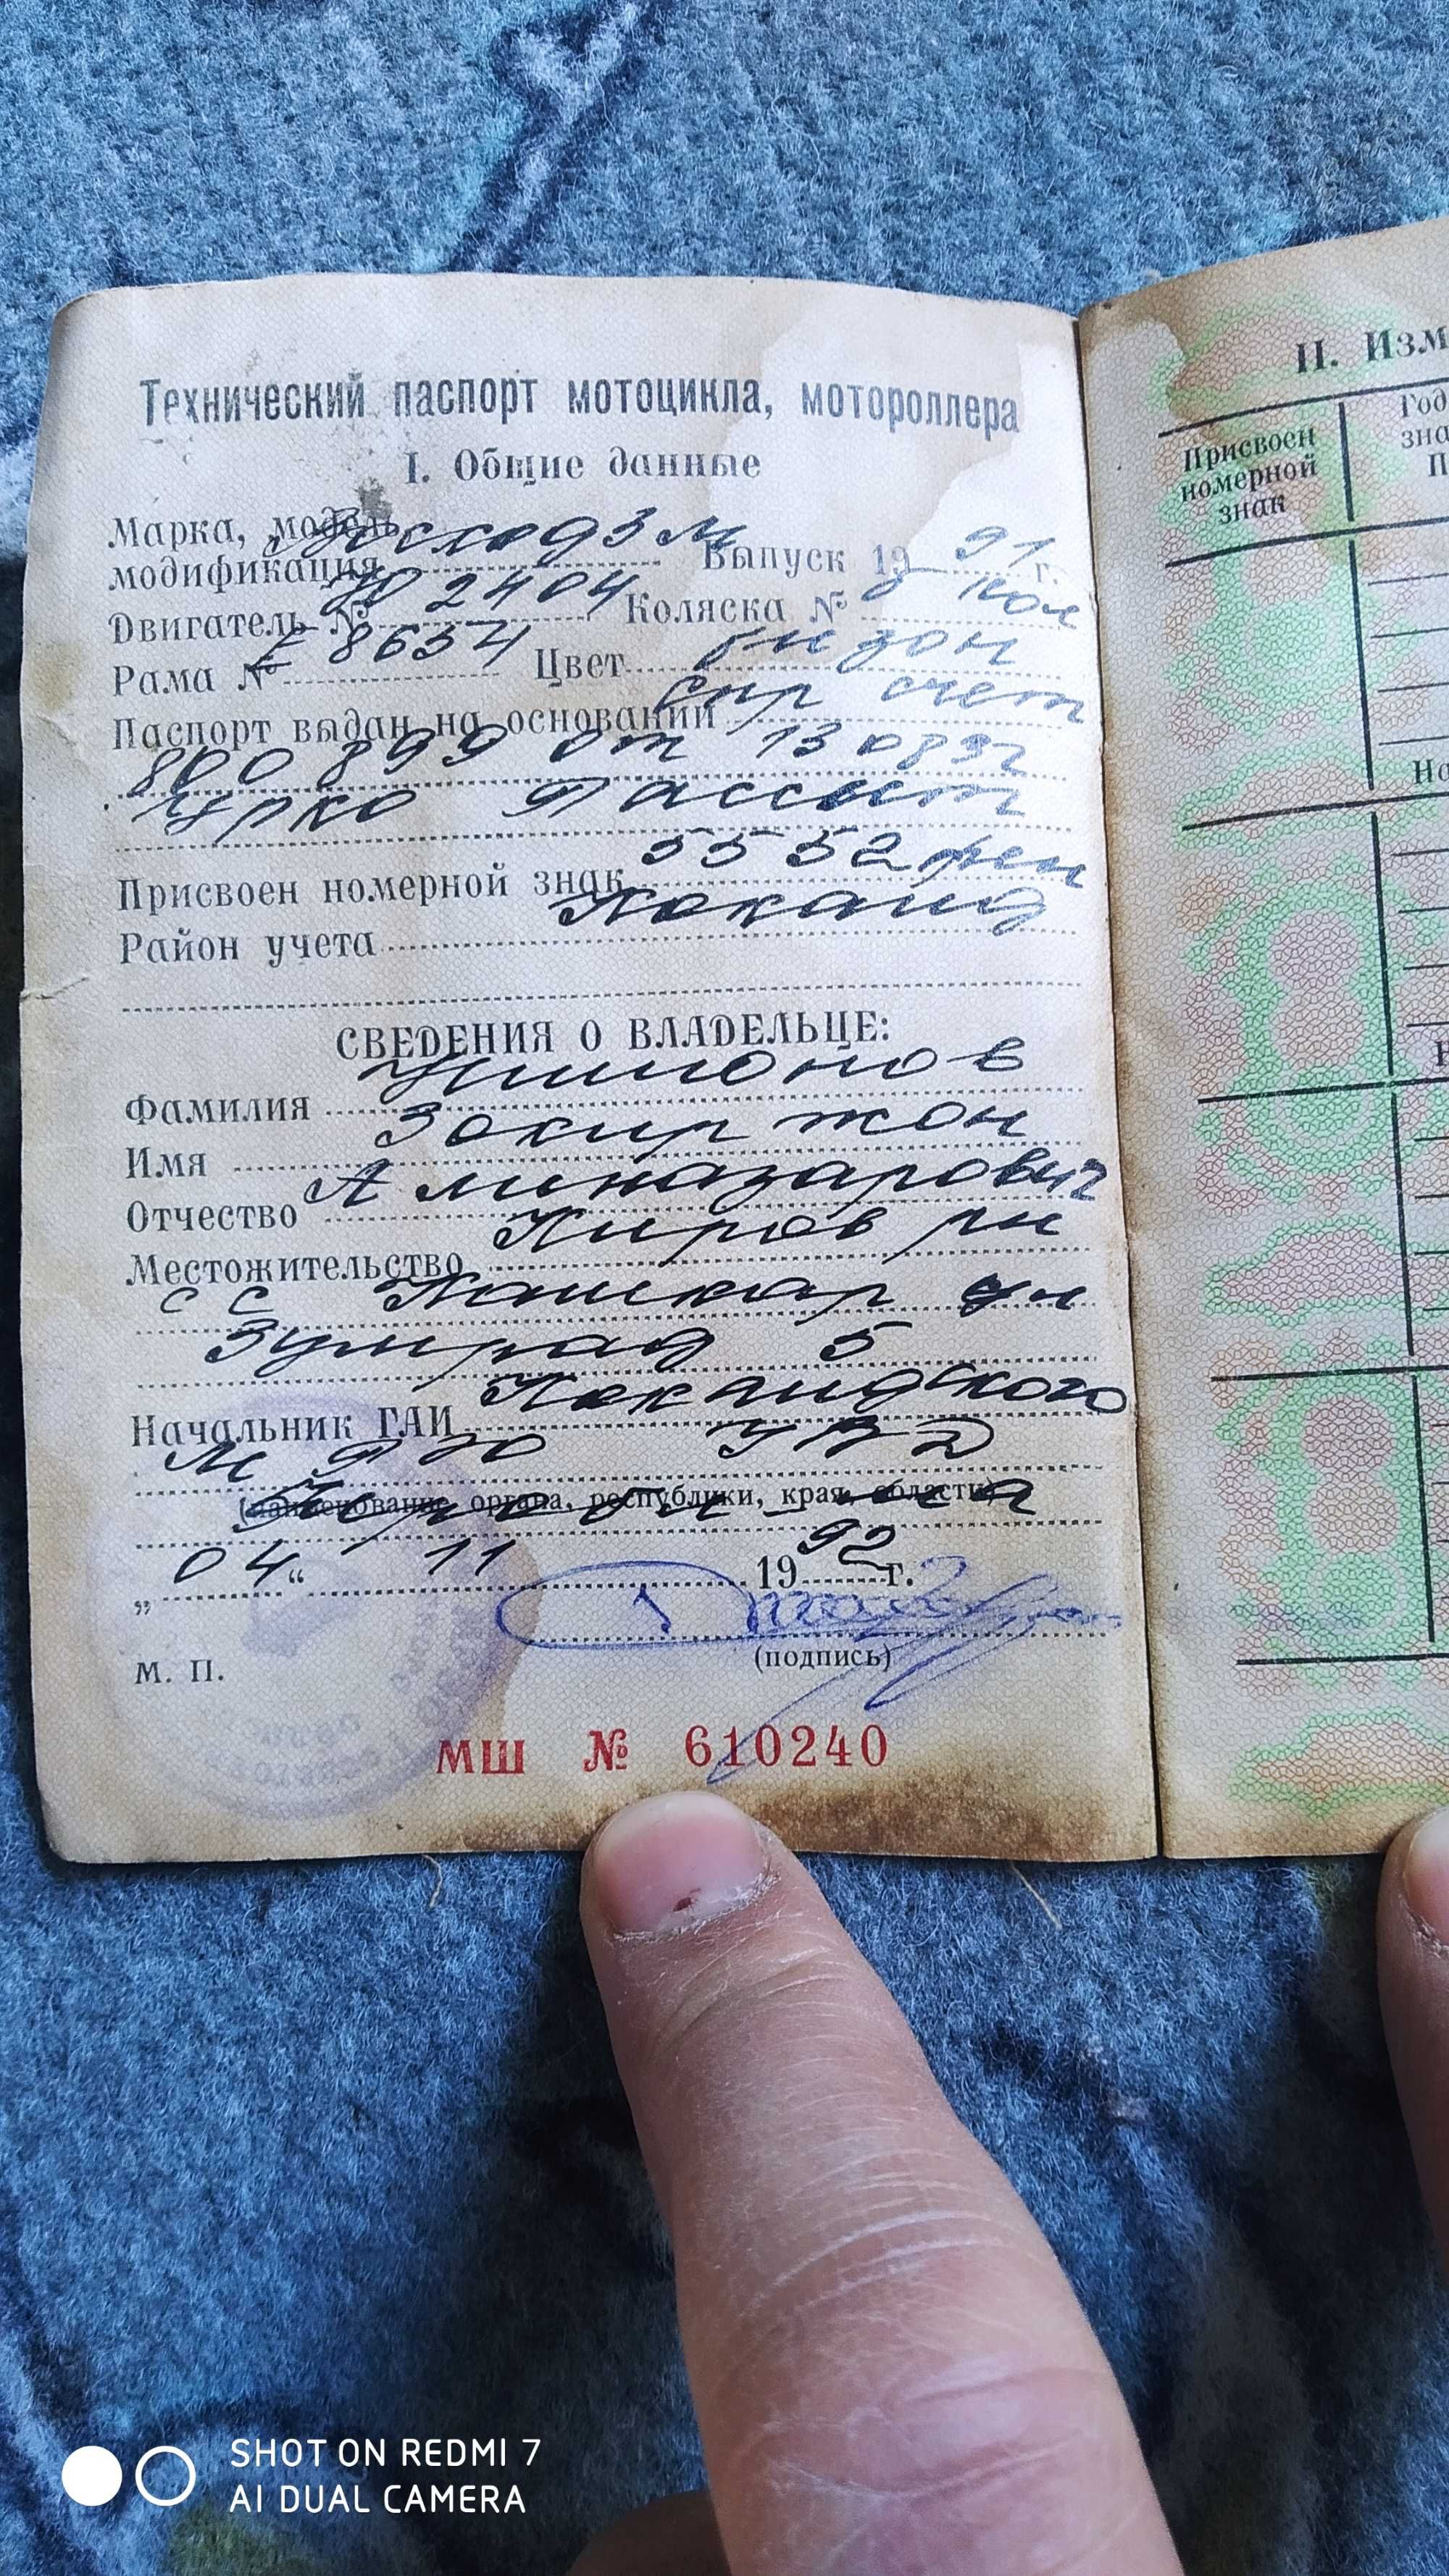 Технический паспорт мотоцикла, мотороллера
I. Общие данные
Марка, модель
модификация Восход 3 М Выпуск 19 91 г.
Двигатель № 2404 Коляска № б/кол
Рама № Е 8654 Цвет бизон
Паспорт выдан на основании спр счет
800899 от 130892
Присвоен номерной знак 5552
Район учета Коканд
СВЕДЕНИЯ О ВЛАДЕЛЬЦЕ:
Фамилия
Имя Зокиржон
Отчество Аминазарович
Местожительство Киров рн
с с Кашкар ул
Зумрад 5
Начальник ГАИ Кокандского
УВД
(наименование органа, республики, края, области)
„ 04 “ 11 19 92 г.
(подпись)
М. П.
МШ № 610240
II. Изм
Присвоен
номерной
знак
Год
SHOT ON REDMI 7
AI DUAL CAMERA